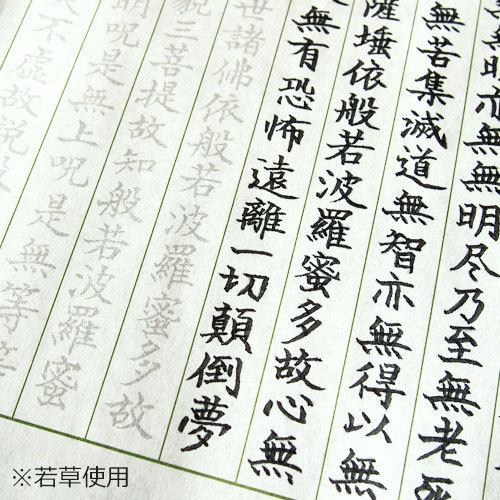 明亦無無明尽乃至無老死
無苦集滅道無智亦無得以無
薩埵依般若波羅蜜多故心無
無有恐怖遠離一切顛倒夢
世諸佛依般若波羅蜜多故
藐三菩提故知般若波羅蜜
明呪是無上呪是無等等
不虚故説般
※若草使用